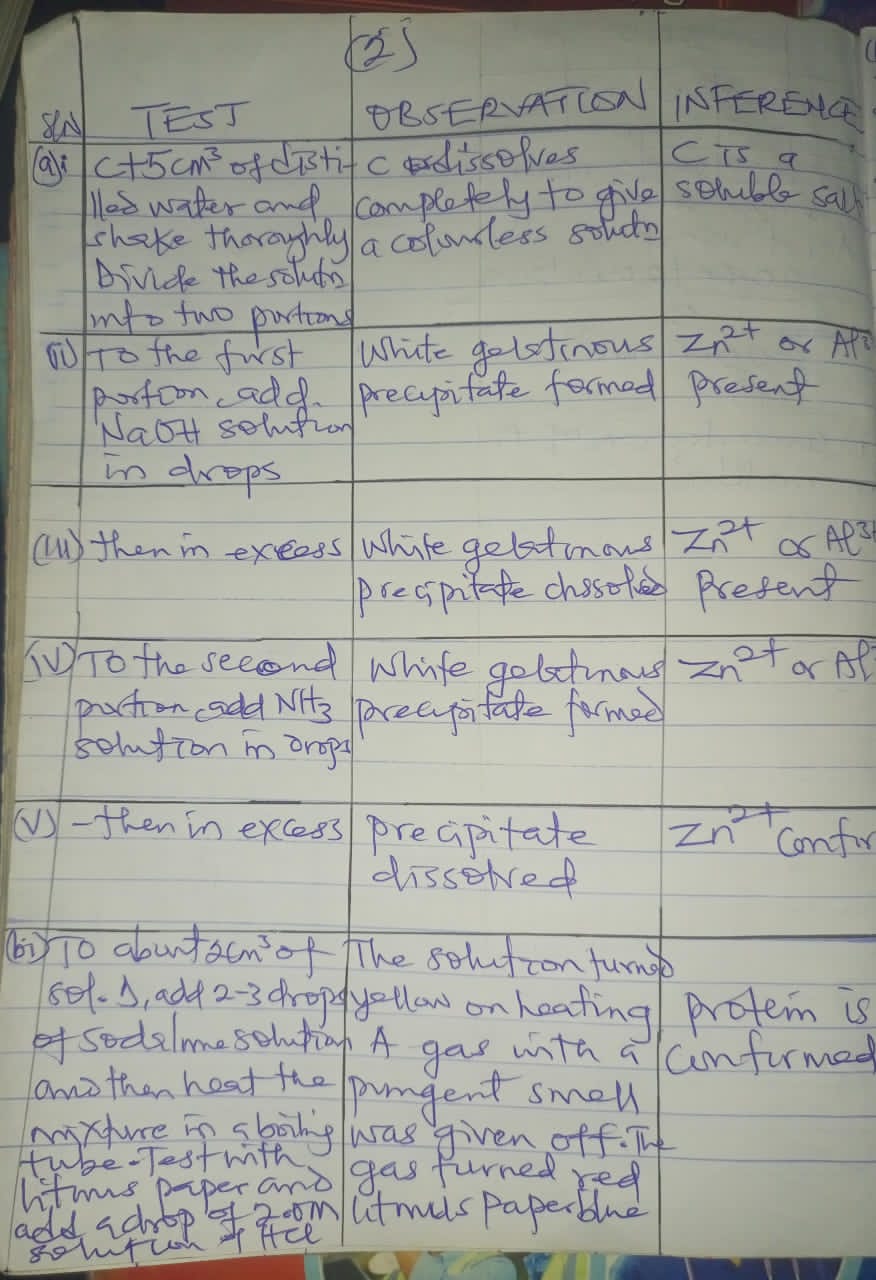 (2)
S/N TEST OBSERVATION INFERENCE
(a)i C+5cm³ of disti-
lled water and
shake thoroughly
Divide the solutn
into two portions
C dissolves
completely to give
a colourless solutn
C is a
soluble salt
(ii) To the first
portion, add
NaOH solution
in drops
White gelatinous
precipitate formed
Zn²⁺ or Al³
present
(iii) then in excess
White gelatinous
precipitate dissolved
Zn²⁺ or Al³⁺
Present
(iv) To the second
portion, add NH₃
solution in drops
White gelatinous
precipitate formed
Zn²⁺ or Al
(v) -then in excess
precipitate
dissolved
Zn²⁺ Confir
(bi) To about 2cm³ of
sol. 1, add 2-3 drops
of sodalime solution
and then heat the
mixture in a boiling
tube. Test with
litmus paper and
add a drop of 2.0m
solution of HCl
The solution turned
yellow on heating
A gas with a
pungent smell
was given off. The
gas turned red
litmus paper blue
protein is
Confirmed